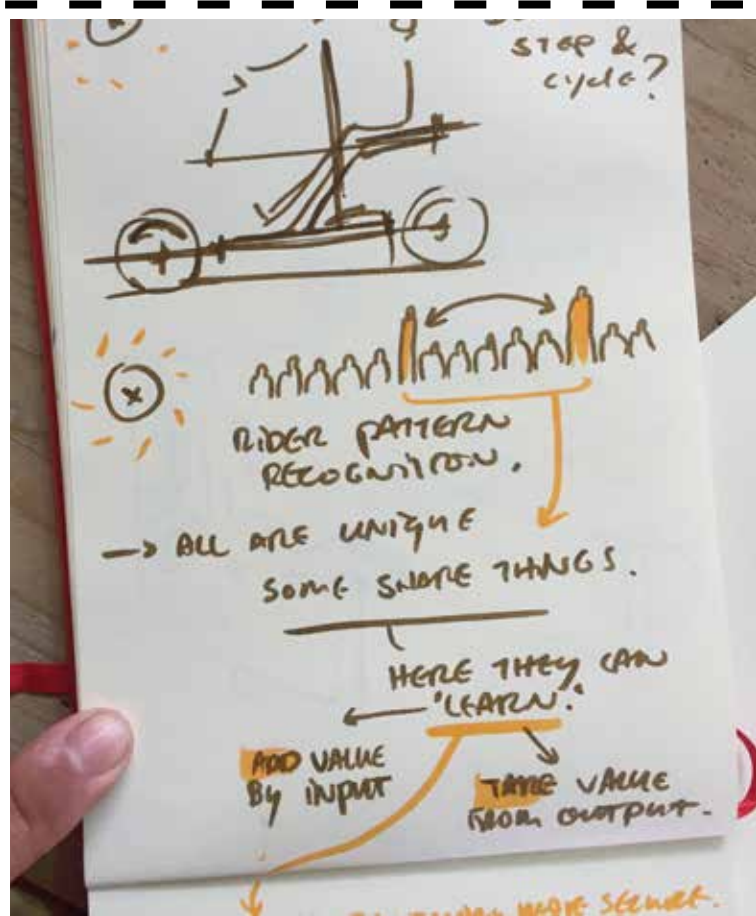 step &
cycle?
RIDER PATTERN
RECOGNITION.
→ ALL ARE UNIQUE
SOME SHARE THINGS.
HERE THEY CAN
"LEARN."
ADD VALUE
BY INPUT
TAKE VALUE
FROM OUTPUT.
MORE SECURE.